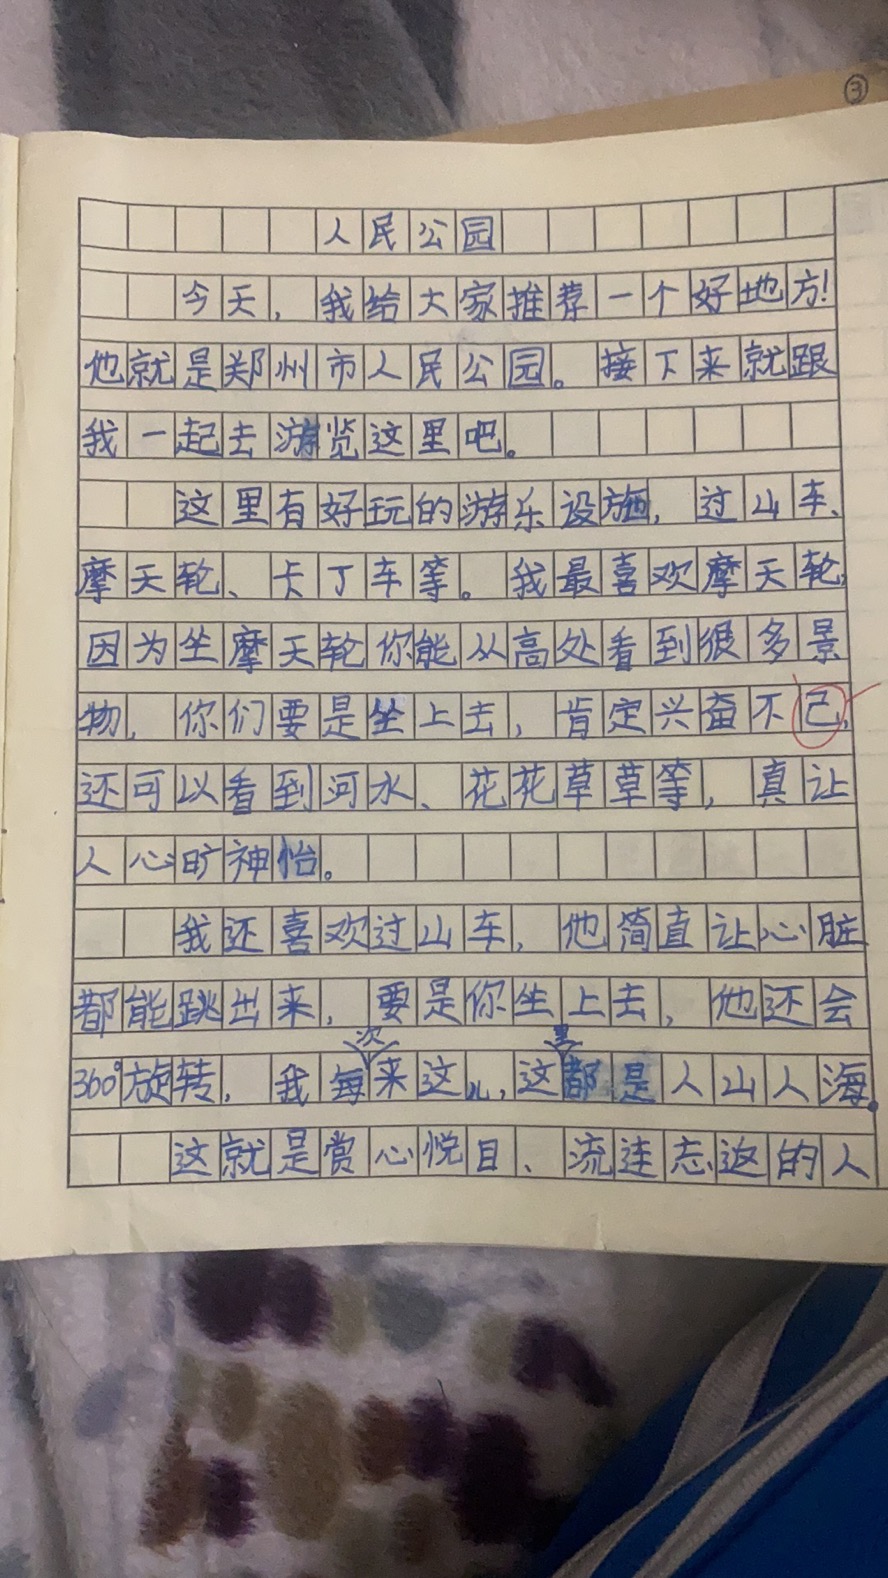 ③
人民公园
今天，我给大家推荐一个好地方！
他就是郑州市人民公园。接下来就跟
我一起去游览这里吧。
这里有好玩的游乐设施，过山车、
摩天轮、卡丁车等。我最喜欢摩天轮，
因为坐摩天轮你能从高处看到很多景
物，你们要是坐上去，肯定兴奋不己，
还可以看到河水、花花草草等，真让
人心旷神怡。
我还喜欢过山车，他简直让心脏
都能跳出来，要是你坐上去，他还会
360°旋转，我每次来这儿，这里都是人山人海。
这就是赏心悦目、流连志返的人